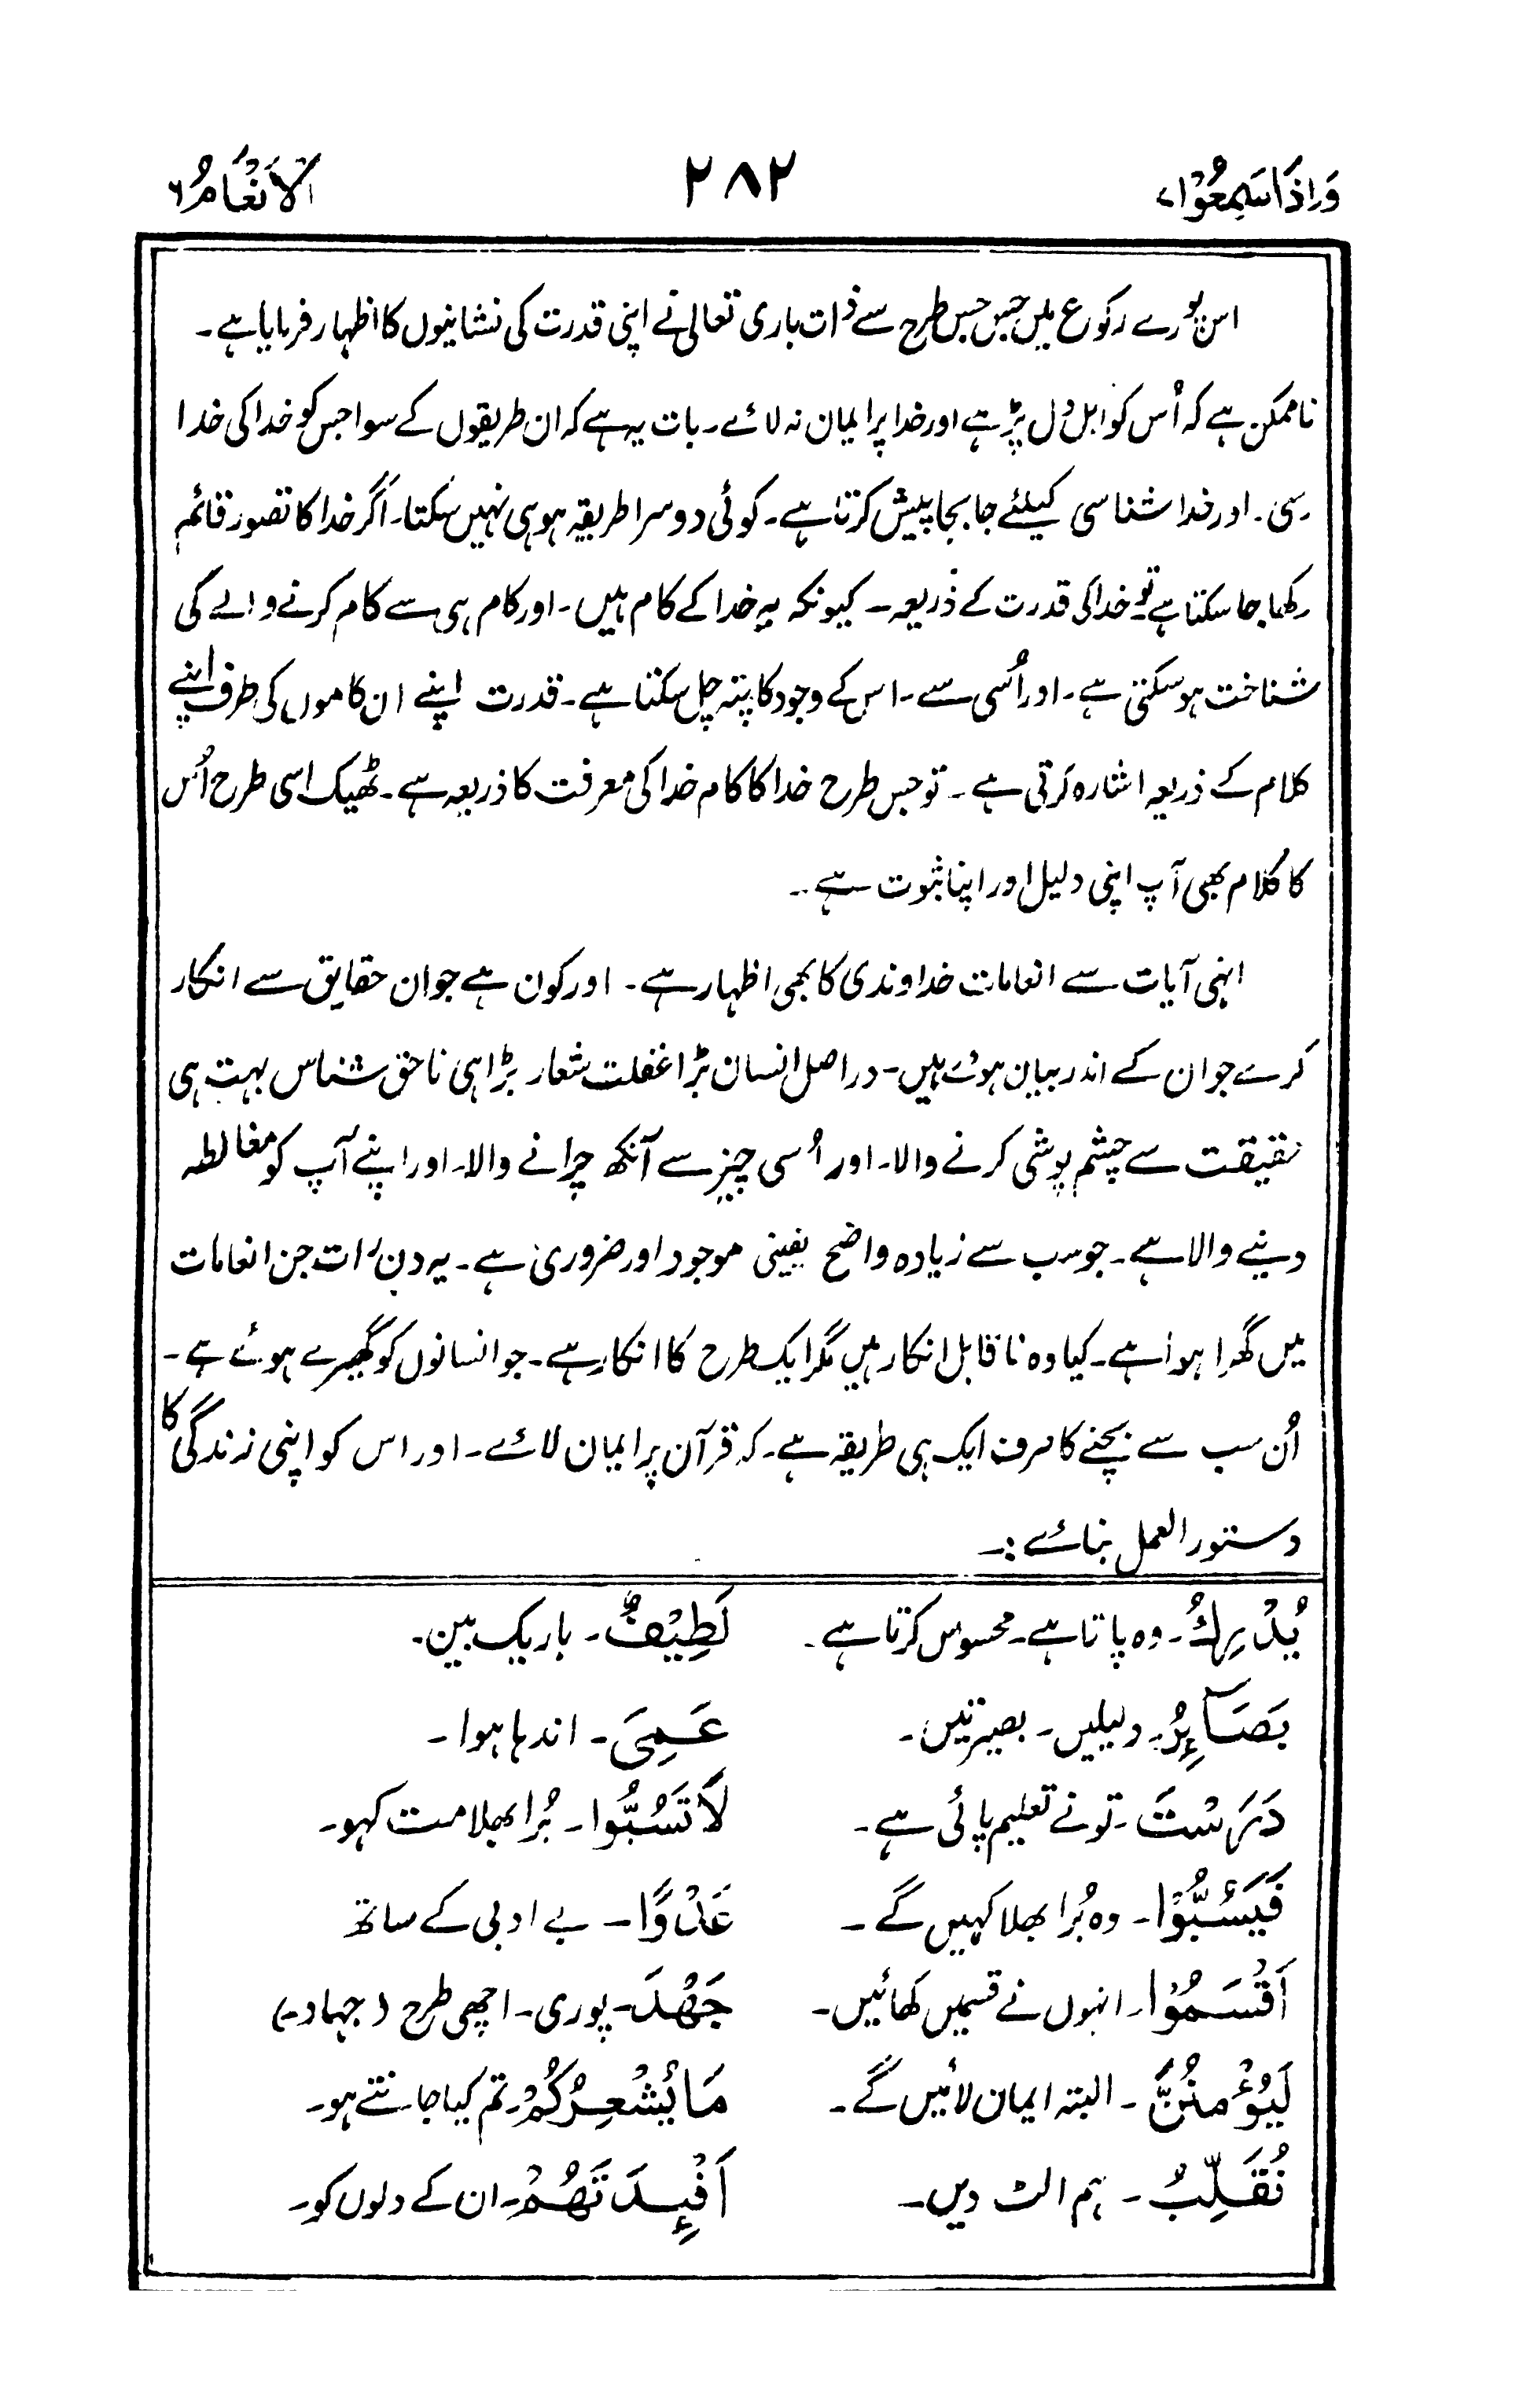 وَاِذَا سَمِعُوْا ۷
۲۸۲
اَلْاَنْعَامُ ۶
اس پورے رکوع میں جس جس طرح سے ذات باری تعالیٰ نے اپنی قدرت کی نشانیوں کا اظہار فرمایا ہے۔
ناممکن ہے کہ اُس کو اہل دل پڑہے اور خدا پر ایمان نہ لائے۔ بات یہ ہے کہ ان طریقوں کے سوا جس کو خدا کی خدا
رسی۔ اور خدا شناسی کیلئے جا بجا پیش کرتا ہے۔ کوئی دوسرا طریقہ ہو ہی نہیں سکتا۔ اگر خدا کا تصور قائم
رکھا جا سکتا ہے تو۔ خدا کی قدرت کے ذریعہ۔ کیونکہ یہ خدا کے کام ہیں۔ اور کام ہی سے کام کرنے والے کی
شناخت ہو سکتی ہے۔ اور اُسی سے۔ اس کے وجود کا پتہ چل سکتا ہے۔ قدرت اپنے ان کاموں کی طرف اپنے
کلام کے ذریعہ اشارہ کرتی ہے۔ تو جس طرح خدا کا کام خدا کی معرفت کا ذریعہ ہے۔ ٹھیک اسی طرح اُس
کا کلام بھی آپ اپنی دلیل اور اپنا ثبوت ہے۔
انہی آیات سے انعامات خداوندی کا بھی اظہار ہے۔ اور کون ہے جو ان حقایق سے انکار
کرے جو ان کے اندر بیان ہوئے ہیں۔ دراصل انسان بڑا غفلت شعار بڑا ہی ناحق شناس بہت ہی
حقیقت سے چشم پوشی کرنے والا۔ اور اُسی چیز سے آنکھ چرانے والا۔ اور اپنے آپ کو مغالطہ
دینے والا ہے۔ جو سب سے زیادہ واضح یقینی موجود اور ضروری ہے۔ یہ دن رات جن انعامات
میں گھرا ہوا ہے۔ کیا وہ ناقابل انکار ہیں مگر ایک طرح کا انکار ہے۔ جو انسانوں کو گھیرے ہوئے ہے۔
اُن سب سے بچنے کا صرف ایک ہی طریقہ ہے۔ کہ قرآن پر ایمان لائے۔ اور اس کو اپنی زندگی کا
دستور العمل بنائے:۔
یُدْرِكُ۔ وہ پاتا ہے۔ محسوس کرتا ہے۔ لَطِیْفٌ۔ باریک بین۔
بَصَآىِٕرُ۔ دلیلیں۔ بصیرتیں۔ عَمِیَ۔ اندہا ہوا۔
دَرَسْتَ۔ تو نے تعلیم پائی ہے۔ لَاتَسُبُّوا۔ بُرا بھلا مت کہو۔
فَیَسُبُّوْا۔ وہ بُرا بھلا کہیں گے۔ عَدْوًا۔ بے ادبی کے ساتھ
اَقْسَمُوْا۔ انہوں نے قسمیں کھائیں۔ جَهْدَ۔ پوری۔ اچھی طرح (جہاد۔)
لَیُؤْمِنُنَّ۔ البتہ ایمان لائیں گے۔ مَایُشْعِرُكُمْ۔ تم کیا جانتے ہو۔
نُقَلِّبُ۔ ہم الٹ دیں۔ اَفْـِٕدَتَهُمْ۔ ان کے دلوں کو۔